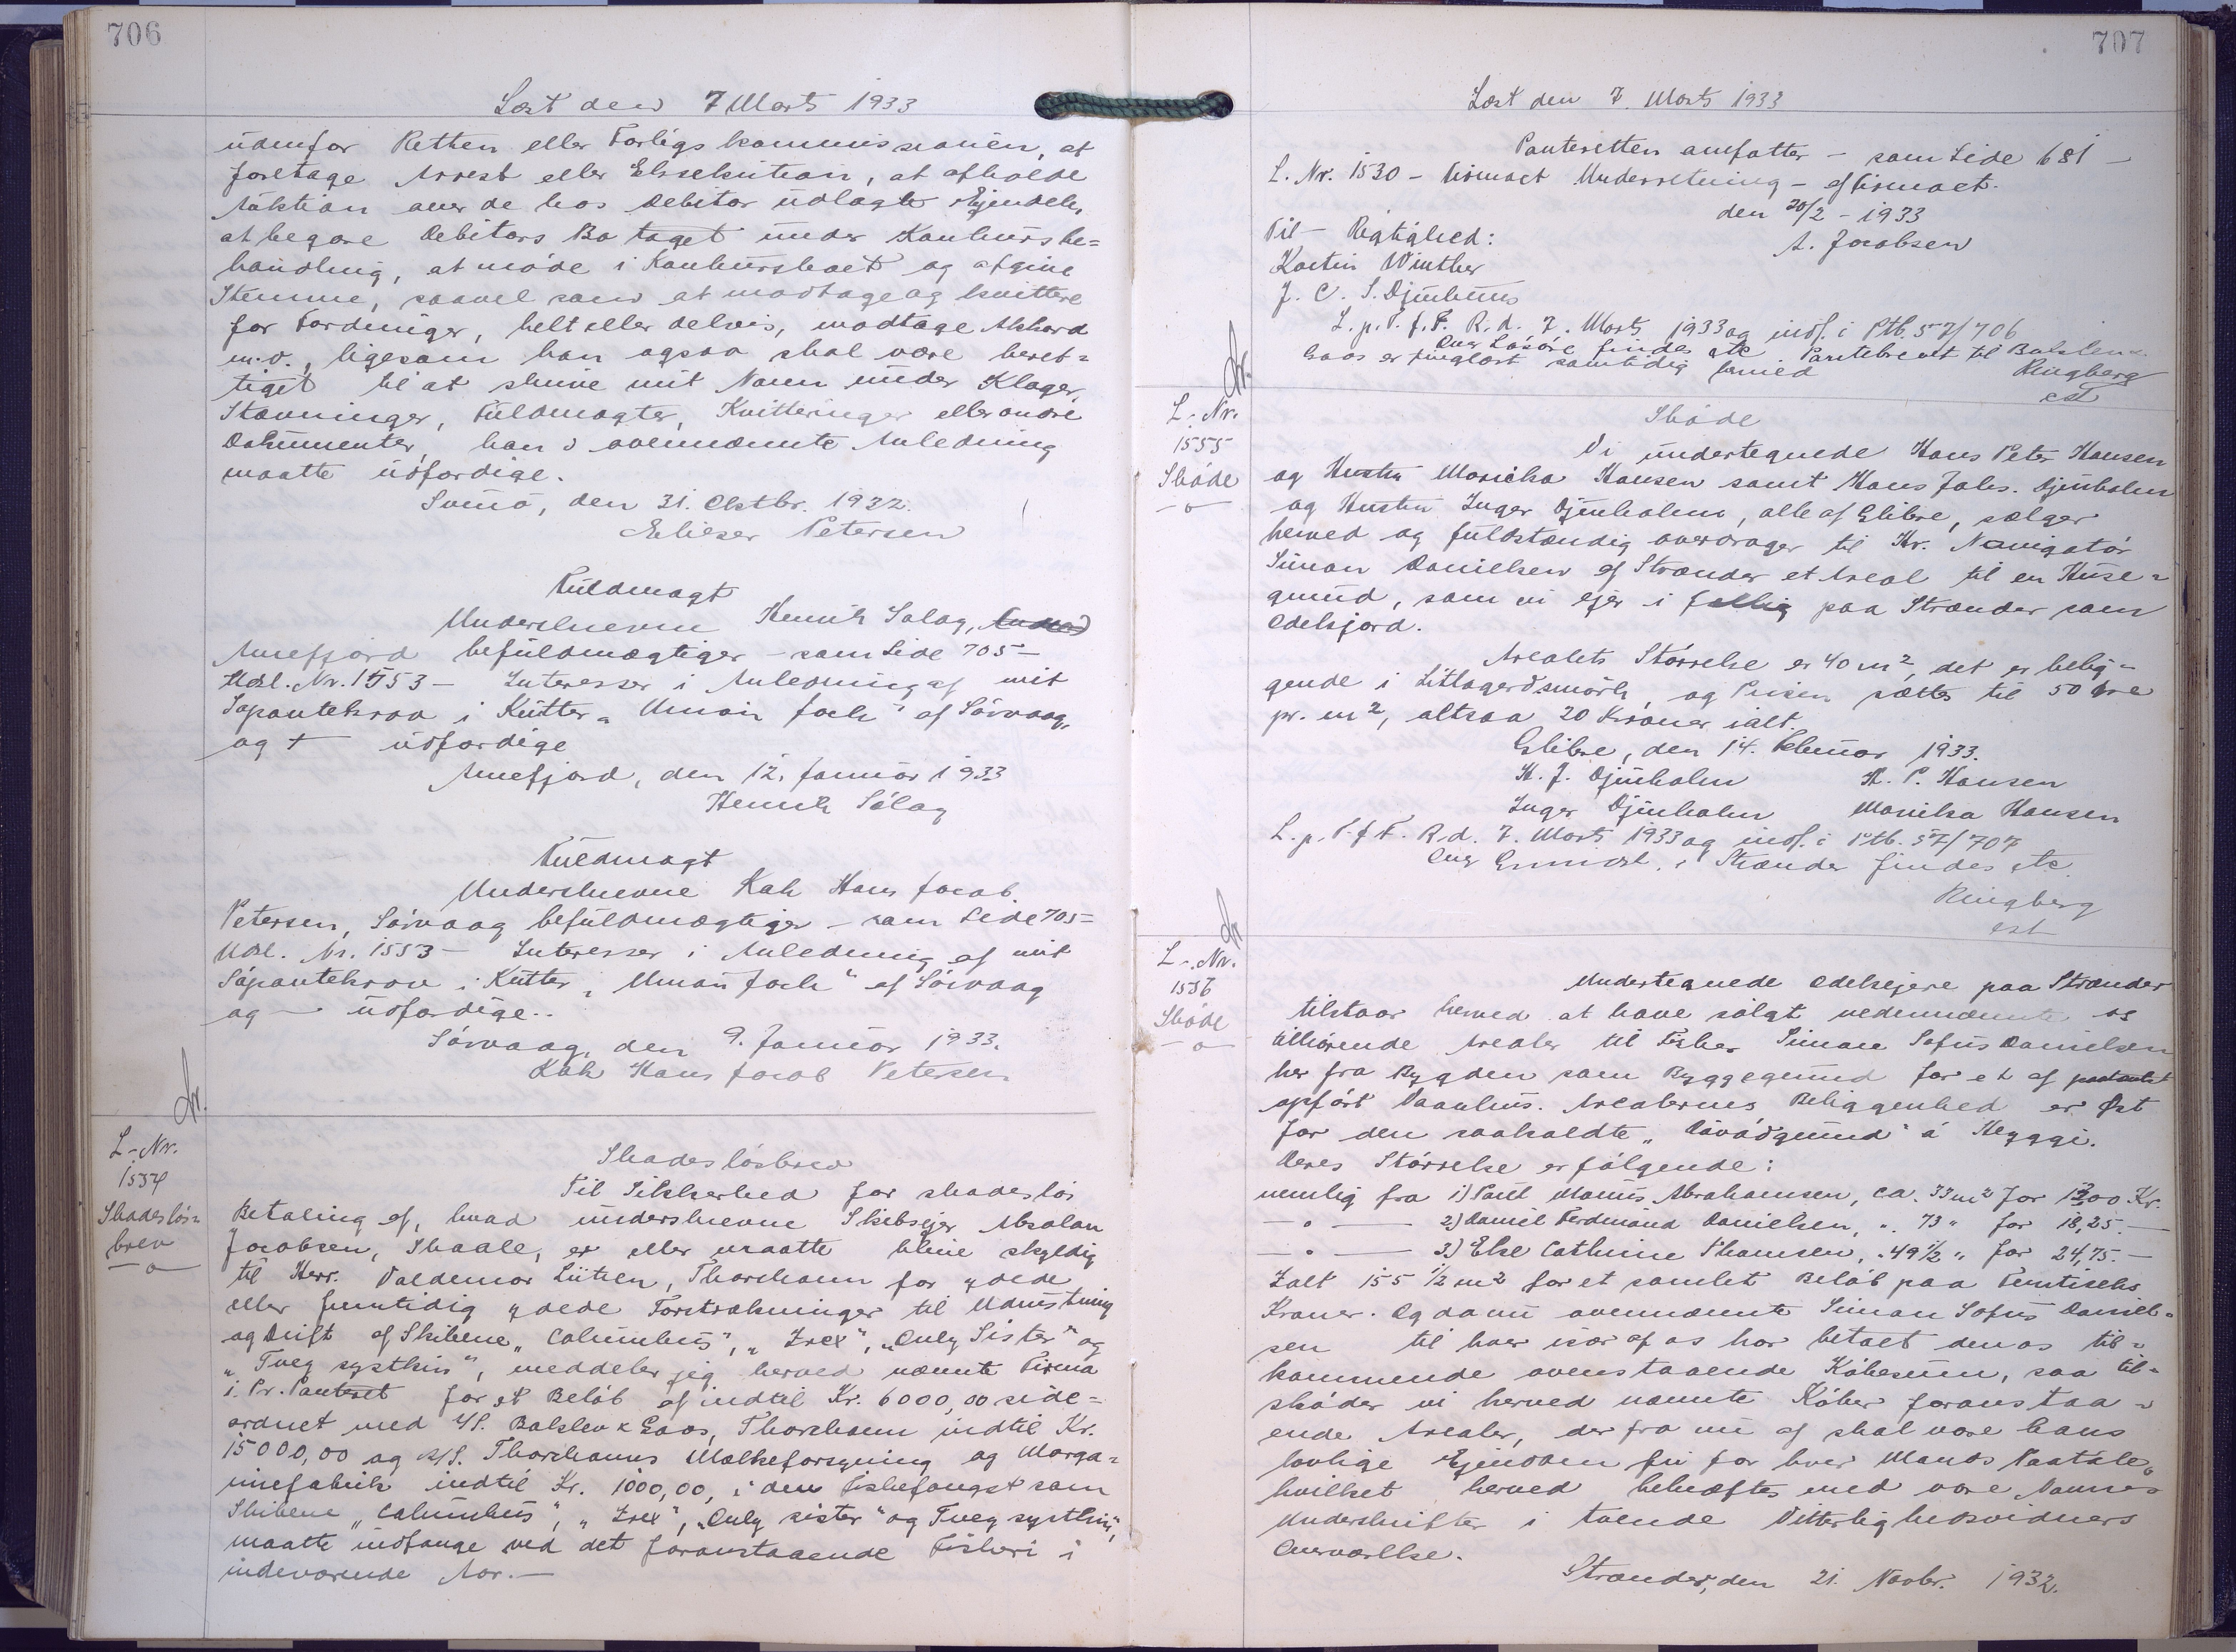 706
Læst den 7 Marts 1933
udenfor Retten eller Forligskommissionen, at
foretage Arrest eller Eksekution, at afholde
Auktion over de hos Debitor udlagte Ejendele,
at begære Debitors Bo taget under Konkursbe=
handling, at møde i Konkursboet og afgive
Stemme, saavel som at modtage og kvittere
for Fordringer, helt eller delvis, modtage Akkord
m.v., ligesom han ogsaa skal være beret=
tiget til at skrive mit Navn under Klager,
Stævninger, Fuldmagter, Kvitteringer eller andre
Dokumenter, han i ovennævnte Anledning
maatte udfærdige.
Sumø, den 31. Oktbr. 1932.
Elieser Petersen
Fuldmagt
Underskrevne Henrik Solag,
Arnefjord befuldmægtiger - som Side 705 -
Udl. Nr. 1553 - Interesser i Anledning af mit
Søpantekrav i Kutter "Union Jack" af Sørvaag,
og + udfærdige
Arnefjord, den 12. Januar 1933
Henrik Sólag
Fuldmagt
Underskrevne Kah Hans Jacob
Petersen, Sørvaag befuldmægtiger - som Side 705 =
Udl. Nr. 1553 - Interesser i Anledning af mit
Søpantekrav i Kutter "Union Jack" af Sørvaag
og — udfærdige..
Sørvaag, den 9. Januar 1933.
Kah Hans Jacob Petersen
L.-Nr.
1554
Skadesløs=
brev
—o—
Skadesløsbrev
Til Sikkerhed for skadesløs
Betaling af, hvad underskrevne Skibsejer Absalon
Jacobsen, Skaale, er eller maatte blive skyldig
til Herr. Valdemar Lützen, Thorshavn for ydede
eller fremtidig ydede Forstrækninger til Udrustning
og Drift af Skibene "Columbus", "Irex", "Only Sister" og
"Tvey systkin", meddeler jeg herved nævnte Firma
1. Pr. Panteret for et Beløb af indtil Kr. 6000,00 side=
ordnet med A/S. Balslev & Goos, Thorshavn indtil Kr.
15000,00 og A/S. Thorshavns Mælkeforsyning og Marga=
rinefabrik indtil Kr. 1000,00, i den Fiskefangst som
Skibene "Columbus", "Irex", "Only sister" og Tvey systkin",
maatte indfange ved det forestaaende Fiskeri i
indeværende Aar.—
707
Læst den 7. Marts 1933
Panteretten omfatter - som Side 681 -
L. Nr. 1530 - Firmaet Underretning - af Firmaet.
den 20/2 - 1933
A. Jacobsen
Til Rigtighed:
Kastin Winther
J. C. S. Djurhuus
L. p. T. f. F. R. d. 7. Marts 1933 og indf. i Ptb. 57/706
Over Løsøre findes etc. Pantebrevet til Balslev &
Goos er tinglæst samtidig hermed
Ringberg
cst
L.-Nr.
1555
Skøde
—o—
Skøde
Vi undertegnede Hans Peter Hansen
og Hustru Monika Hansen samt Hans Jabs. Djurholm
og Hustru Inger Djurholm, alle af Glibre, sælger
herved og fuldstændig overdrager til Hr. Navigatør
Simon Danielsen af Strænder et Areal til en Huse=
grund, som vi ejer i fællig paa Strænder som
Odelsjord.
Arealets Størrelse er 40 m², det er belig=
gende i Litlagerdsmørk, og Prisen sættes til 50 Øre
pr. m², altsaa 20 Kroner ialt
Glibre, den 14. Februar 1933.
H. J. Djurholm H. P. Hansen
Inger Djurholm Monika Hansen
L. p. T. f. F. R. d. 7. Marts 1933 og indf. i Ptb. 57/707
Over Ermost. i Strænder findes etc.
Ringberg
cst
L.-Nr.
1556
Skøde
—o—
Undertegnede Odelsejere paa Strænder
tilstaar herved at have solgt nedennævnte os
tilhørende Arealer til Fisker Simon Sofus Danielsen
her fra Bygden som Byggegrund for et af
opført Vaanhus. Arealernes Beliggenhed er Øst
for den saakaldte á Heyggi.
Deres Størrelse er følgende:
nemlig fra 1) Poul Monus Abrahamsen, ca. 33 m² for 13,00 Kr.
—"— 2) Daniel Ferdinand Danielsen, ". 73 " for 18,25.—
—"— 3) Else Cathrine Thomsen, "49½ " for 24,75.—
Ialt 155½ m² for et samlet Beløb paa Femtiseks
Kroner. Og da nu ovennævnte Simon Sofus Daniel=
sen til hver især af os har betalt den os til=
kommende ovenstaaende Købesum, saa til=
skøder vi herved nævnte Køber foranstaa=
ende Arealer, der fra nu af skal være hans
lovlige Ejendom fri for hver Mands Paatale,
hvilket herved bekræftes med vore Navnes
Underskrifter i tvende Vitterlighedsvidners
Overværelse.
Strænder, den 21. Novbr. 1932.